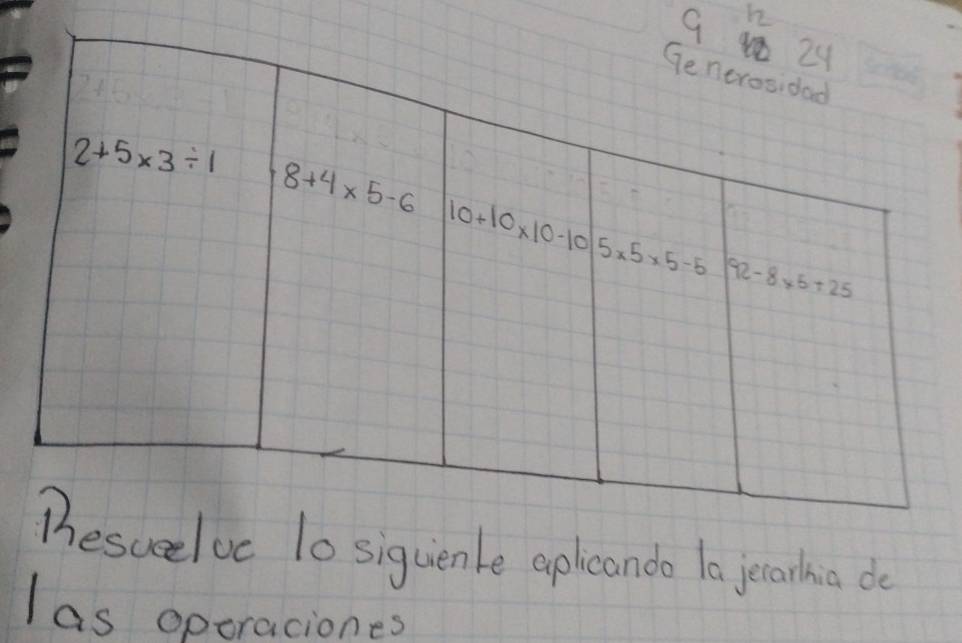 9 12 24
Generosidad
2+5×3÷1
8+4×5-6
10+10×10-10
5×5×5-5
92-8×5+25
Resuelve lo siguiente aplicando la jerarhia de
las operaciones